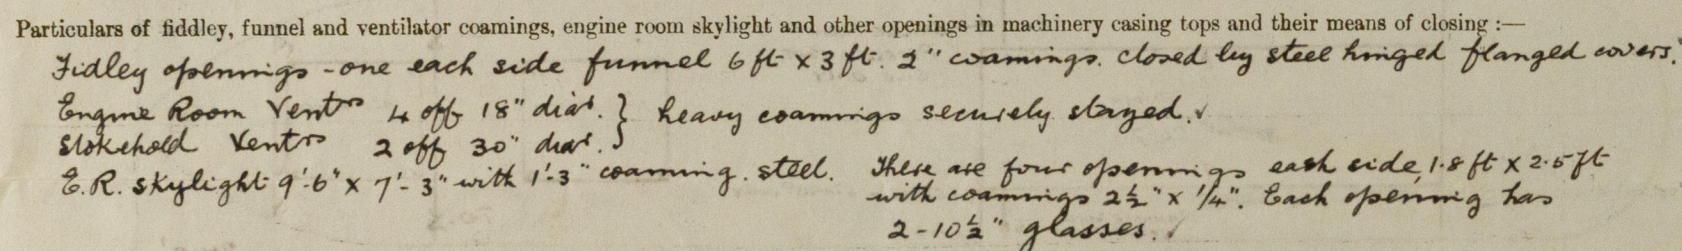 Particulars of fiddley, funnel and ventilator coamings, engine room skylight and other openings in machinery casing tops and their means of closing :—
Fidley openings - one each side funnel 6 ft x 3 ft. 2" coamings. closed by steel hinged flanged covers.
Engine Room Ventrs 4 off 18" diar. } heavy coamings securely stayed. ✓
Stokehold Ventrs 2 off 30" diar. }
E.R. skylight 9'-6" x 7'-3" with 1'-3" coaming. steel. There are four openings each side, 1.8 ft x 2.5 ft
with coamings 2½" x ¼". Each opening has
2-10½" glasses. ✓